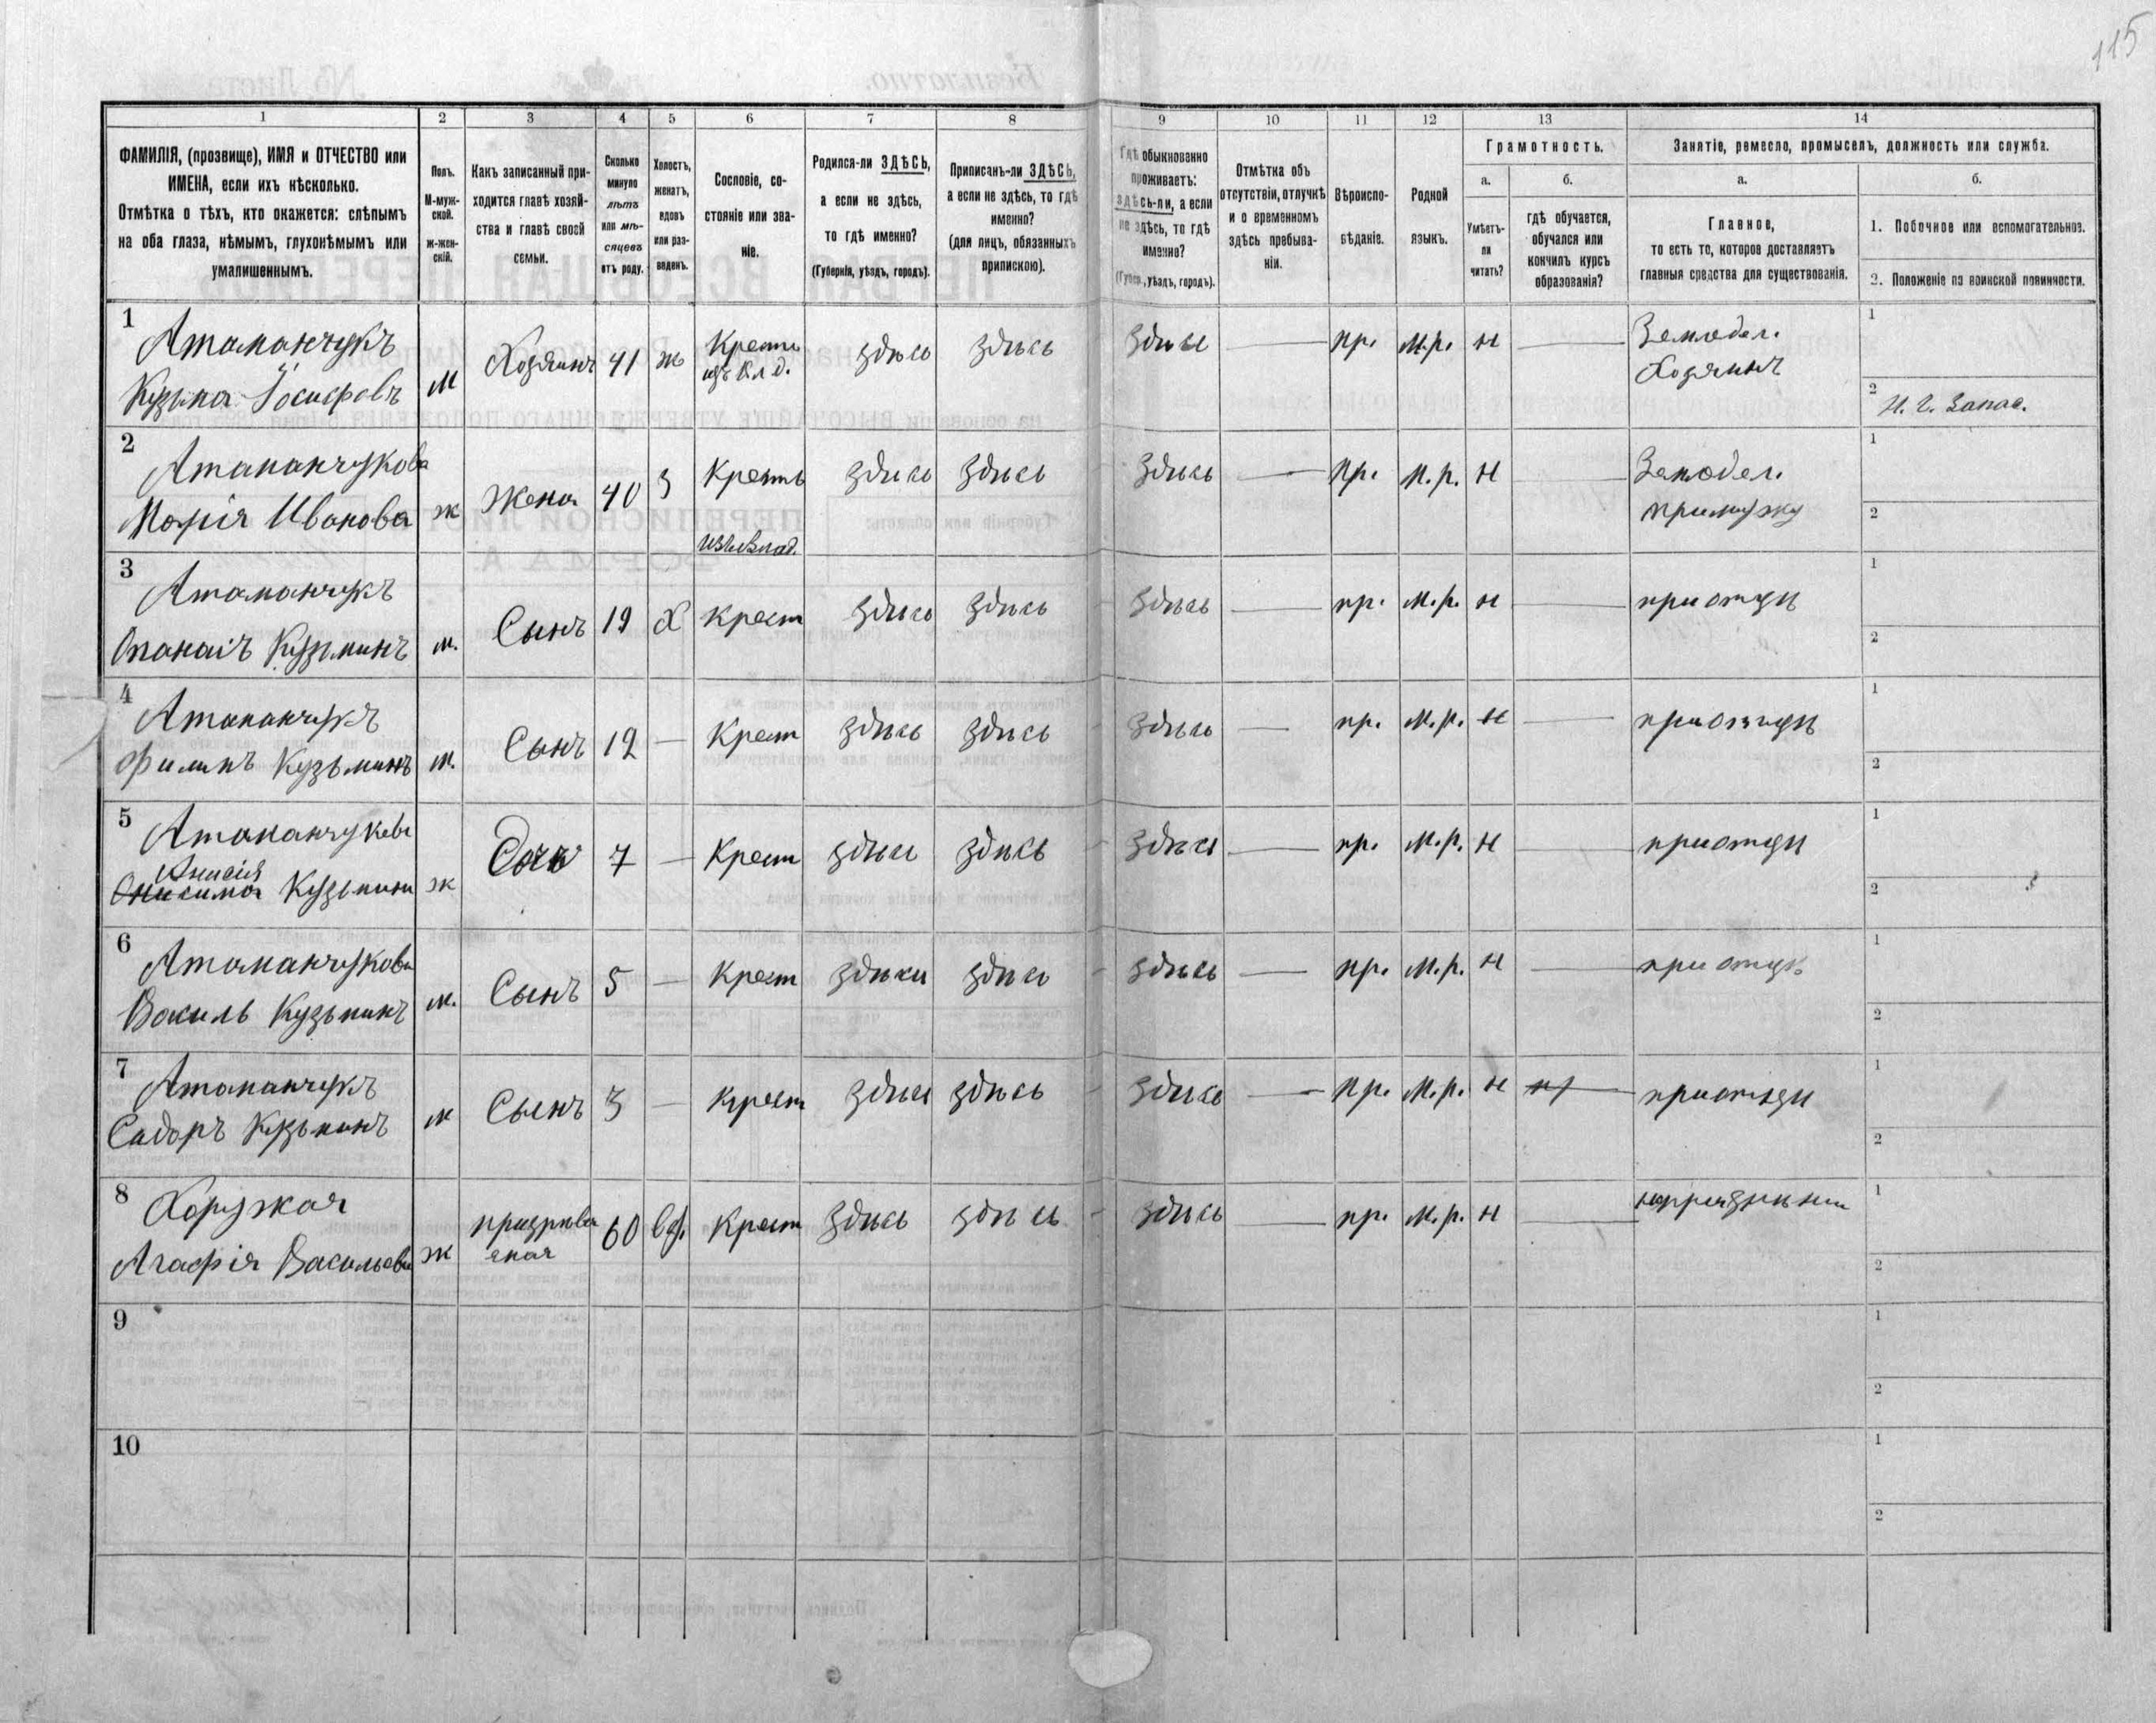 115
1 2 3 4 5 6 7 8 9 10 11 12 13 14
ФАМИЛІЯ, (прозвище), ИМЯ и ОТЧЕСТВО или
ИМЕНА, если ихъ нѣсколько.
Отмѣтка о тѣхъ, кто окажется: слѣпымъ
на оба глаза, нѣмымъ, глухонѣмымъ или
умалишеннымъ.
Полъ.
М-муж-
ской.
ж-жен-
скій.
Какъ записанный при-
ходится главѣ хозяй-
ства и главѣ своей
семьи.
Сколько
минуло
лѣтъ
или мѣ-
сяцевъ
отъ роду.
Холостъ,
женатъ,
вдовъ
или раз-
веденъ.
Сословіе, со-
стояніе или зва-
ніе.
Родился-ли ЗДѢСЬ,
а если не здѣсь,
то гдѣ именно?
(Губернія, уѣздъ, городъ).
Приписанъ-ли ЗДѢСЬ,
а если не здѣсь, то гдѣ
именно?
(для лицъ, обязанныхъ
припискою).
Гдѣ обыкновенно
проживаетъ:
здѣсь-ли, а если
не здѣсь, то гдѣ
именно?
(Губер., уѣздъ, городъ).
Отмѣтка объ
отсутствіи, отлучкѣ
и о временномъ
здѣсь пребыва-
ніи.
Вѣроиспо-
вѣданіе.
Родной
языкъ.
Грамотность.
а.
Умѣетъ-
ли
читать?
б.
гдѣ обучается,
обучался или
кончилъ курсъ
образованія?
Занятіе, ремесло, промыселъ, должность или служба.
а.
Главное,
то есть то, которое доставляетъ
главныя средства для существованія.
б.
1. Побочное или вспомогательное.
2. Положеніе по воинской повинности.
1 Атаманчукъ
Кузьма Іосифовъ м Хозяинъ 41 ж Кресть
изъ влд. здѣсь здѣсь здѣсь — пр. м.р. н — Земледел.
Хозяинъ
1
2 Н. Ч. Запас.
2 Атаманчукова
Марія Иванова ж Жена 40 З Кресть здѣсь здѣсь здѣсь — пр. м.р. н — Земледел.
примужу
1
2
3 Атаманчукъ
Опанасъ Кузьминъ м. Сынъ 19 Х Крест здѣсь здѣсь здѣсь — пр. м.р. н — приотцѣ
1
2
4 Атаманчукъ
Филипъ Кузьминъ м. Сынъ 12 — Крест здѣсь здѣсь здѣсь — пр. м.р. н — приотцѣ
1
2
5 Атаманчукова
Анисія
Онисима Кузьмина ж Дочь 7 — Крест здѣсь здѣсь здѣсь — пр. м.р. н — приотцѣ
1
2
6 Атаманчукова
Василь Кузьминъ м. Сынъ 5 — Крест здѣсь здѣсь здѣсь — пр. м.р. н — приотцѣ
1
2
7 Атаманчукъ
Сидоръ Кузьминъ м Сынъ 3 — Крест здѣсь здѣсь здѣсь — пр. м.р. н — приотцѣ
1
2
8 Хоружая
Агафія Васильева ж призрѣва
емая 60 вд. Крест здѣсь здѣсь здѣсь — пр. м.р. н —
1
2
9
1
2
10
1
2